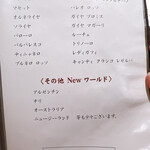 アオット
バレオ ロッソ
テルネライヤ
ガイヤ プロミス
ソライヤ
ガイヤ マガーリ
バローロ
ルーチェ
バルバレスコ
トリノーロ
ティニャネロ
レディガフィ
ブルネロ ロッソ
キャンティ クラシコ レゼルバ
〈その他 New ワールド〉
アルゼンチン
チリ
オーストラリア
ニュージーランド 等もございます。